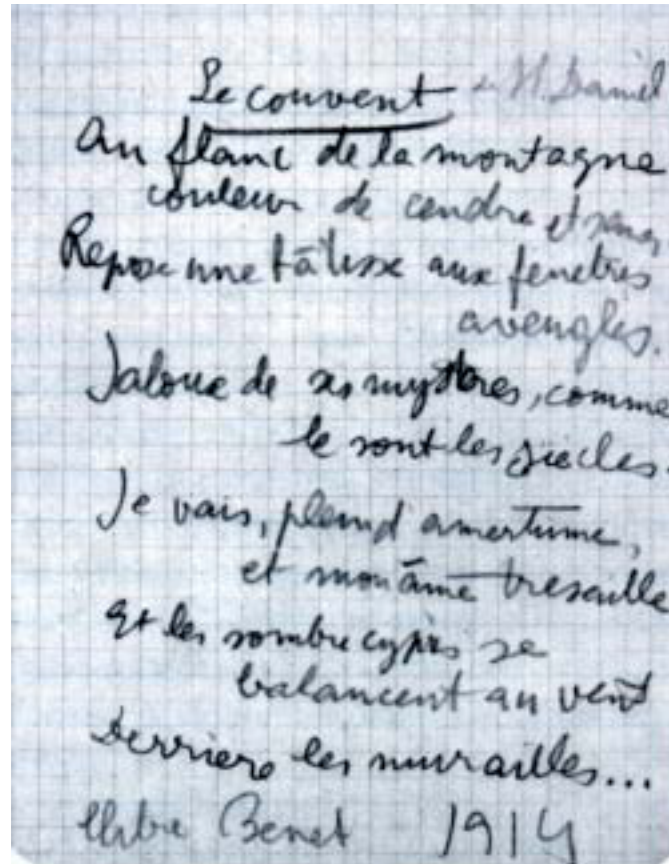 Le couvent de H. Daniel
Au flanc de la montagne
couleur de cendre et
Repose une bâtisse aux fenetres
aveugles.
Jaloux de ses mystères, comme
le sont les siècles.
Je vais, plein d'amertume,
et mon âme tresaille
Et les sombre cyprès se
balancent au vent
Derriere les murailles...
Benet 1914